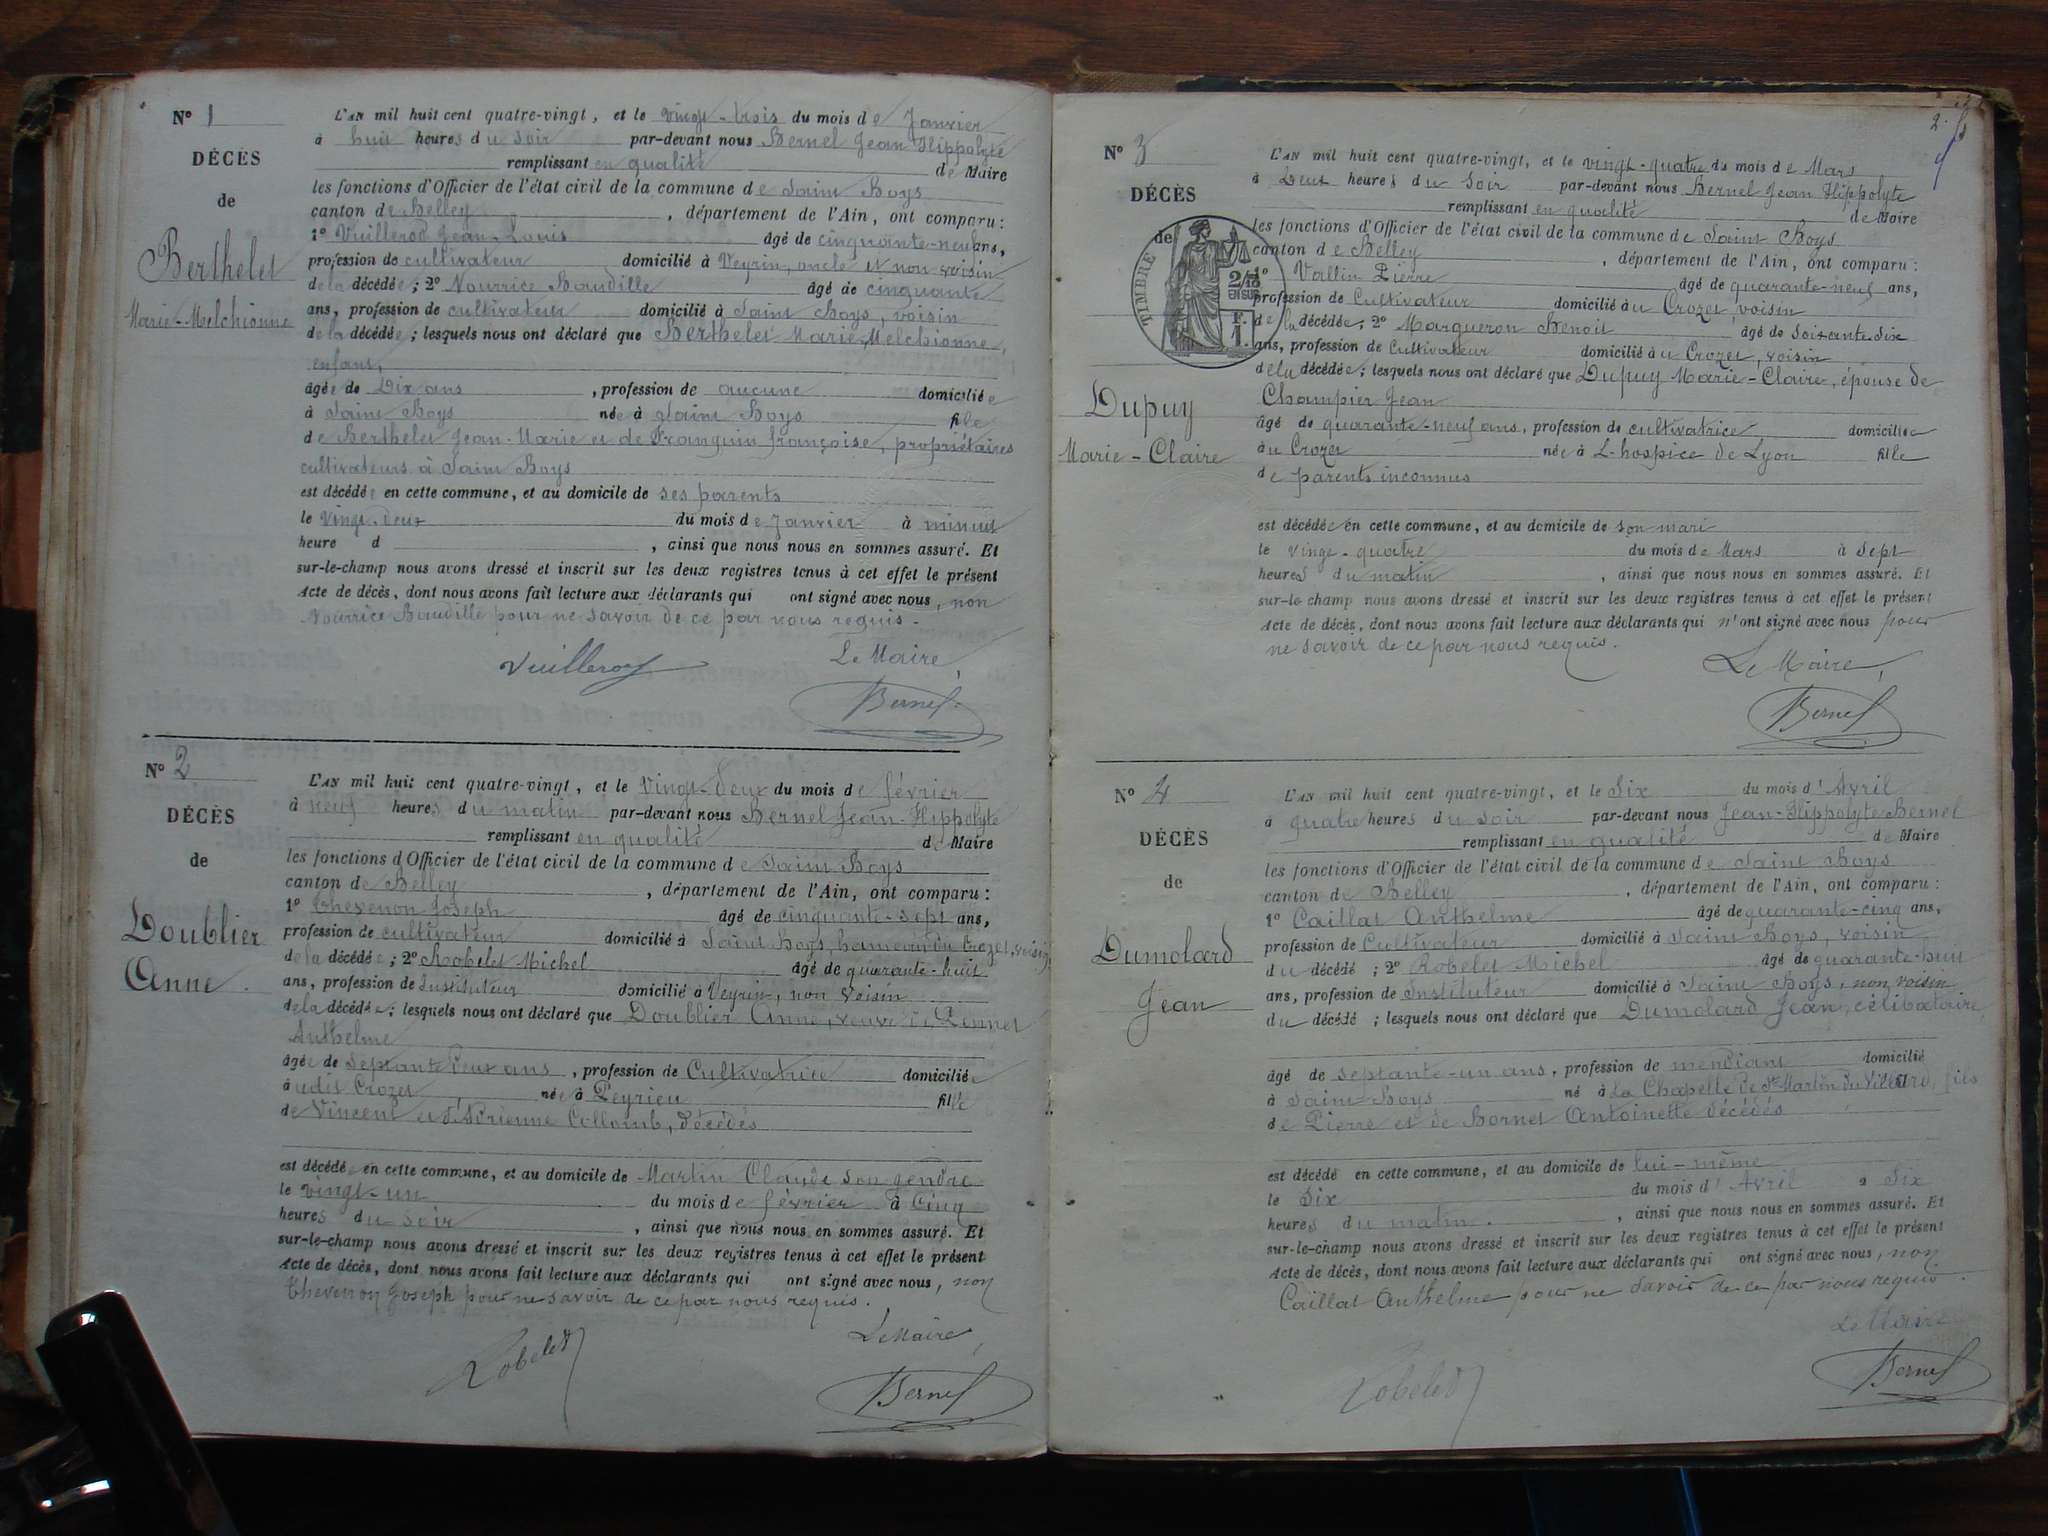 N° 1
DÉCÈS
de
Berthelet
Marie-Melchionne
L'AN mil huit cent quatre-vingt, et le vingt-trois du mois de Janvier
à huit heures du soir par-devant nous Bernel Jean Hippolyte
remplissant en qualité de Maire
les fonctions d'Officier de l'état civil de la commune de Saint Boys
canton de Belley, département de l'Ain, ont comparu:
1° Vuillerod Jean-Louis âgé de cinquante-neuf ans,
profession de cultivateur domicilié à Veyrin, oncle et non voisin
de la décédée; 2° Nourrice Baudille âgé de cinquante
ans, profession de cultivateur domicilié à Saint Boys, voisin
de la décédée; lesquels nous ont déclaré que Berthelet Marie Melchionne,
enfant,
âgée de Dix ans, profession de aucune domiciliée
à Saint Boys née à Saint Boys fille
de Berthelet Jean-Marie et de Franquin françoise, propriétaires
cultivateurs à Saint Boys
est décédée en cette commune, et au domicile de ses parents
le vingt-deux du mois de Janvier à minuit
heure d , ainsi que nous nous en sommes assuré. Et
sur-le-champ nous avons dressé et inscrit sur les deux registres tenus à cet effet le présent
Acte de décès, dont nous avons fait lecture aux déclarants qui ont signé avec nous, non
Nourrice Baudille pour ne savoir de ce par nous requis.
Vuillerod
Le Maire,
Bernel
N° 2
DÉCÈS
de
Doublier
Anne.
L'AN mil huit cent quatre-vingt, et le Vingt-deux du mois de février
à neuf heures du matin par-devant nous Bernel Jean-Hippolyte
remplissant en qualité de Maire
les fonctions d'Officier de l'état civil de la commune de Saint Boys
canton de Belley, département de l'Ain, ont comparu:
1° Thevenon Joseph âgé de cinquante-sept ans,
profession de cultivateur domicilié à Saint Boys, hameau du Crozet, voisin
de la décédée; 2° Robelet Michel âgé de quarante-huit
ans, profession de Instituteur domicilié à Veyrin, non voisin
de la décédée; lesquels nous ont déclaré que Doublier Anne, veuve de
Anthelme
âgée de Septante deux ans, profession de Cultivatrice domiciliée
audit Crozet née à Peyrieu fille
de Vincent et d'Adrienne Collomb, décédés
est décédée en cette commune, et au domicile de Martin Claude son gendre
le vingt-un du mois de février à Cinq
heures du soir, ainsi que nous nous en sommes assuré. Et
sur-le-champ nous avons dressé et inscrit sur les deux registres tenus à cet effet le présent
Acte de décès, dont nous avons fait lecture aux déclarants qui ont signé avec nous, non
Thevenon Joseph pour ne savoir de ce par nous requis.
Robelet
Le Maire,
Bernel
2
N° 3
DÉCÈS
de
TIMBRE
2/10
EN SUS
F.
1.
Dupuy
Marie-Claire
L'AN mil huit cent quatre-vingt, et le vingt-quatre du mois de Mars
à Deux heures du soir par-devant nous Bernel Jean Hippolyte
remplissant en qualité de Maire
les fonctions d'Officier de l'état civil de la commune de Saint Boys
canton de Belley, département de l'Ain, ont comparu:
1° Vallin Pierre âgé de quarante-neuf ans,
profession de Cultivateur domicilié au Crozet, voisin
de la décédée; 2° Margueron Benoit âgé de soixante Six
ans, profession de Cultivateur domicilié au Crozet, voisin
de la décédée; lesquels nous ont déclaré que Dupuy Marie-Claire, épouse de
Champier Jean
âgée de quarante-neuf ans, profession de cultivatrice domiciliée
au Crozet née à L-hospice de Lyon fille
de parents inconnus
est décédée en cette commune, et au domicile de son mari
le vingt-quatre du mois de Mars à sept
heures du matin, ainsi que nous nous en sommes assuré. Et
sur-le-champ nous avons dressé et inscrit sur les deux registres tenus à cet effet le présent
Acte de décès, dont nous avons fait lecture aux déclarants qui n'ont signé avec nous pour
ne savoir de ce par nous requis.
Le Maire,
Bernel
N° 4
DÉCÈS
de
Dumolard
Jean
L'AN mil huit cent quatre-vingt, et le Six du mois d'Avril
à quatre heures du soir par-devant nous Jean-Hippolyte Bernel
remplissant en qualité de Maire
les fonctions d'Officier de l'état civil de la commune de Saint Boys
canton de Belley, département de l'Ain, ont comparu:
1° Caillat Anthelme âgé de quarante-cinq ans,
profession de Cultivateur domicilié à Saint Boys, voisin
du décédé; 2° Robelet Michel âgé de quarante-huit
ans, profession de Instituteur domicilié à Saint Boys, non voisin
du décédé; lesquels nous ont déclaré que Dumolard Jean, célibataire,
âgé de septante-un ans, profession de mendiant domicilié
à Saint-Boys né à La Chapelle de St Martin du Villard, fils
de Pierre et de Bornet Antoinette décédés
est décédé en cette commune, et au domicile de lui-même
le Six du mois d'Avril à Six
heures du matin., ainsi que nous nous en sommes assuré. Et
sur-le-champ nous avons dressé et inscrit sur les deux registres tenus à cet effet le présent
Acte de décès, dont nous avons fait lecture aux déclarants qui ont signé avec nous, non
Caillat Anthelme pour ne savoir de ce par nous requis.
Robelet
Le Maire
Bernel